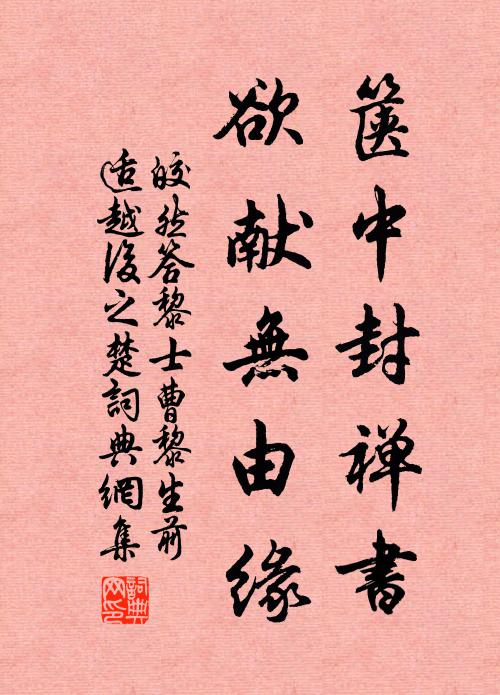 箧中封禅書
欲献無由緣
皎然答黎士曹黎生前
适越後之楚詞典網集
詞典网印